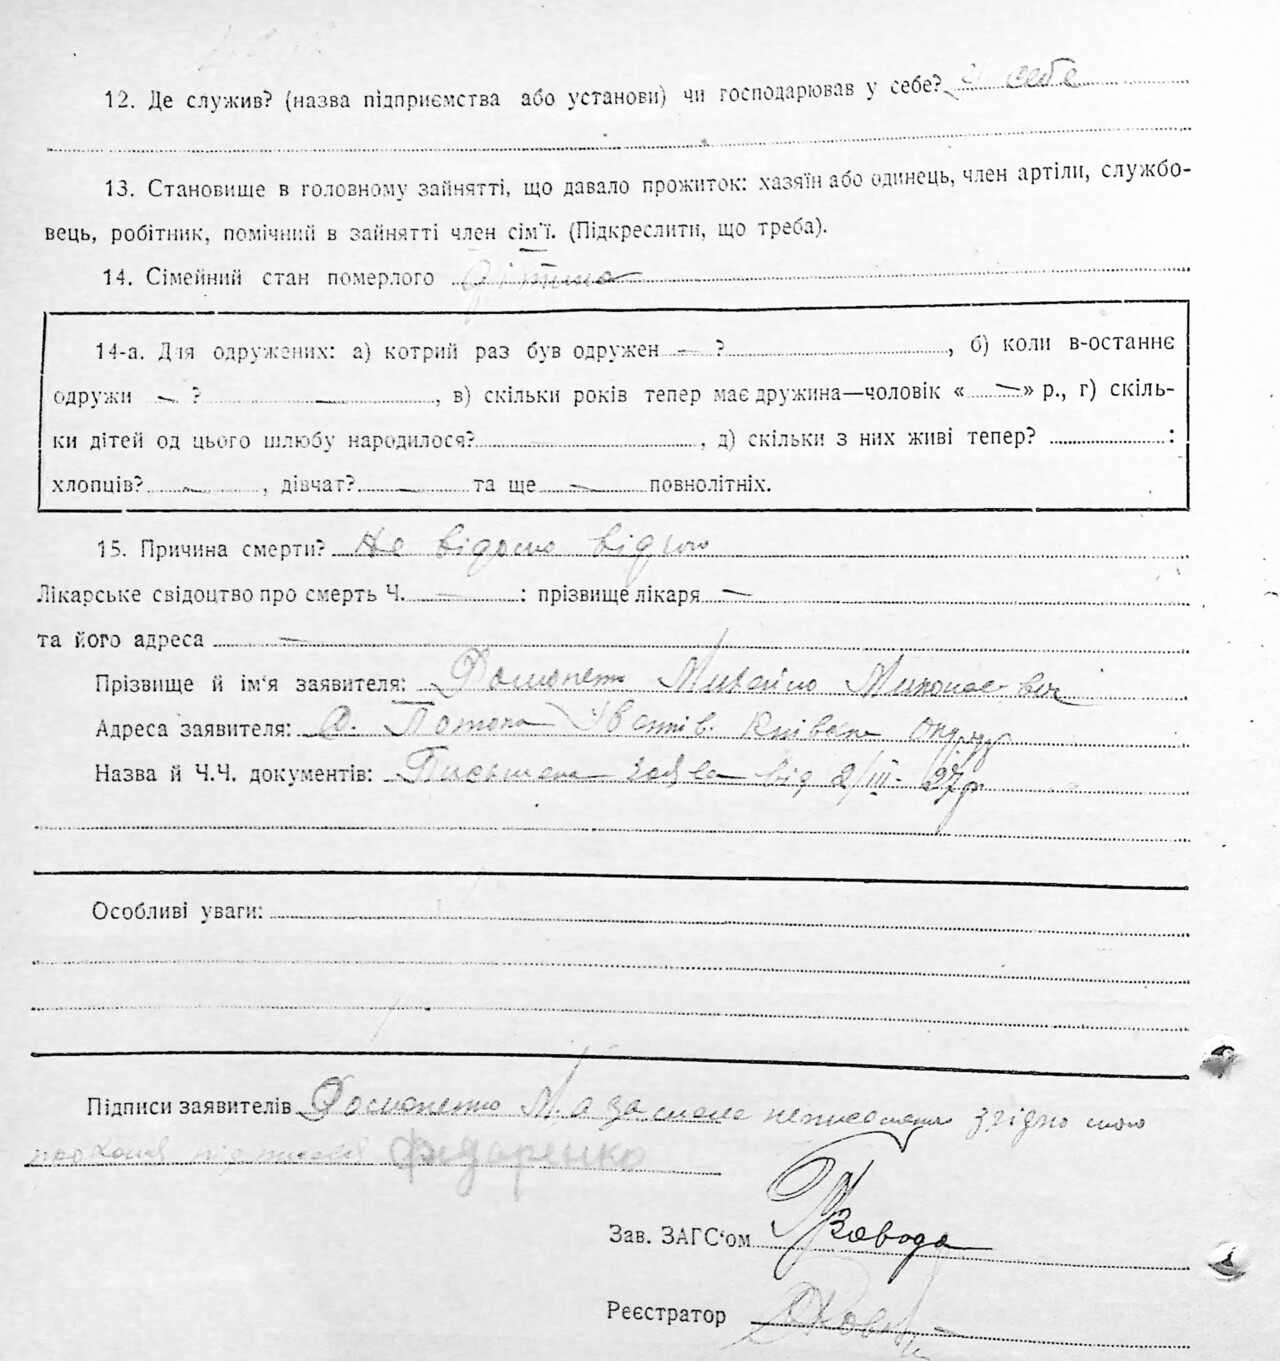 12. Де служив? (назва підприємства або установи) чи господарював у себе? у себе
13. Становище в головному зайнятті, що давало прожиток: хазяїн або одинець, член артіли, службо-
вець, робітник, помічний в зайнятті член сім'ї. (Підкреслити, що треба).
14. Сімейний стан померлого дітина
14-а. Для одружених: а) котрий раз був одружен — ?, б) коли в-останнє
одружи — ? —, в) скільки років тепер має дружина—чоловік « — » р., г) скіль-
ки дітей од цього шлюбу народилося?, д) скільки з них живі тепер? :
хлопців? —, дівчат? — та ще — повнолітніх.
15. Причина смерти? Не відомо від чого
Лікарське свідоцтво про смерть Ч. — : прізвище лікаря —
та його адреса —
Прізвище й ім'я заявителя: Михайло Миколаєвич
Адреса заявителя: с. Потоки Київськ. Округу
Назва й Ч.Ч. документів: Письмена заява від 2/III- 27р
Особливі уваги:
Підписи заявителів М. а за мене неписьмен згідно його
прохання підписався Фидоренко
Зав. ЗАГС'ом
Реєстратор